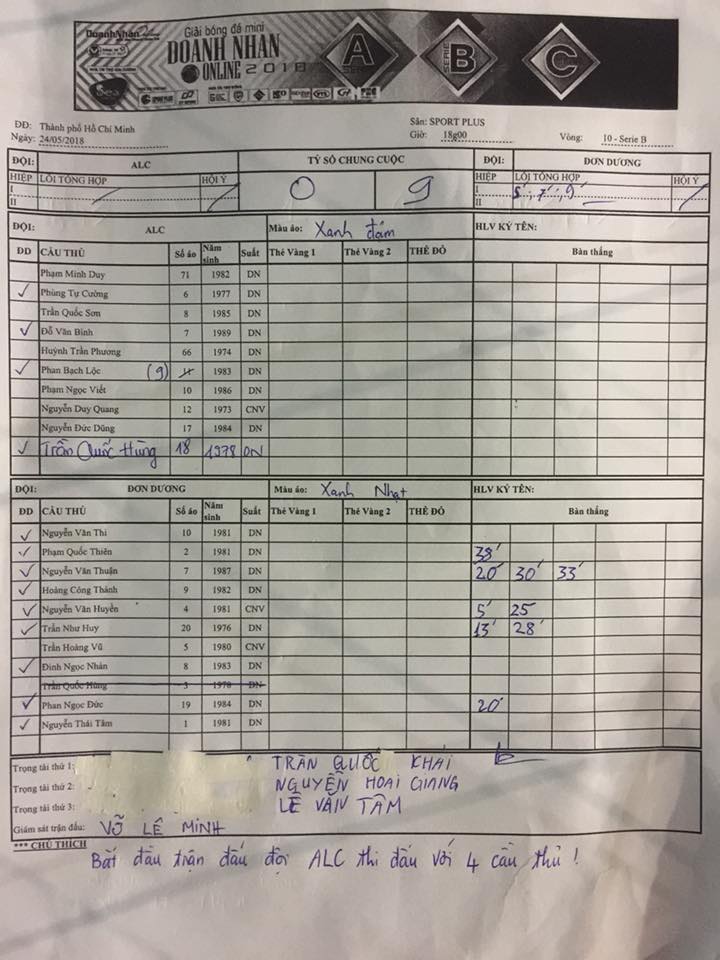 DoanhNhân
Giải bóng đá mini
DOANH NHÂN
ONLINE 2018
A SERIE
B SERIE
C
ĐĐ: Thành phố Hồ Chí Minh Sân: SPORT PLUS
Ngày: 24/05/2018 Giờ: 18g00 Vòng: 10 - Serie B
ĐỘI: ALC TỶ SỐ CHUNG CUỘC ĐỘI: ĐƠN DƯƠNG
HIỆP LỖI TỔNG HỢP HỘI Ý 0 9 HIỆP LỖI TỔNG HỢP HỘI Ý
I I 5', 7', 9'
II II
ĐỘI: ALC Màu áo: Xanh đậm HLV KÝ TÊN:
DD CẦU THỦ Số áo Năm sinh Suất Thẻ Vàng 1 Thẻ Vàng 2 THẺ ĐỎ Bàn thắng
Phạm Minh Duy 71 1982 DN
✓ Phùng Tự Cường 6 1977 DN
Trần Quốc Sơn 8 1985 DN
✓ Đỗ Văn Bình 7 1989 DN
Huỳnh Trần Phương 66 1974 DN
✓ Phan Bạch Lộc (9) 1983 DN
Phạm Ngọc Viết 10 1986 DN
Nguyễn Duy Quang 12 1973 CNV
Nguyễn Đức Dũng 17 1984 DN
✓ Trần Quốc Hùng 18 1978 DN
ĐỘI: ĐƠN DƯƠNG Màu áo: Xanh Nhạt HLV KÝ TÊN:
DD CẦU THỦ Số áo Năm sinh Suất Thẻ Vàng 1 Thẻ Vàng 2 THẺ ĐỎ Bàn thắng
✓ Nguyễn Văn Thi 10 1981 DN
✓ Phạm Quốc Thiên 2 1981 DN 38'
✓ Nguyễn Văn Thuận 7 1987 DN 20' 30' 33'
✓ Hoàng Công Thành 9 1982 DN
✓ Nguyễn Văn Huyền 4 1981 CNV 5' 25
✓ Trần Như Huy 20 1976 DN 13' 28'
Trần Hoàng Vũ 5 1980 CNV
✓ Đinh Ngọc Nhân 8 1983 DN
Trần Quốc Hùng 3 1978 DN
✓ Phan Ngọc Đức 19 1984 DN 20'
✓ Nguyễn Thái Tâm 1 1981 DN
Trọng tài thứ 1: TRẦN QUỐC KHÁI
Trọng tài thứ 2: NGUYỄN HOÀI GIANG
Trọng tài thứ 3: LÊ VĂN TÂM
Giám sát trận đấu: VÕ LÊ MINH
*** CHÚ THÍCH
Bắt đầu trận đấu đội ALC thi đấu với 4 cầu thủ !